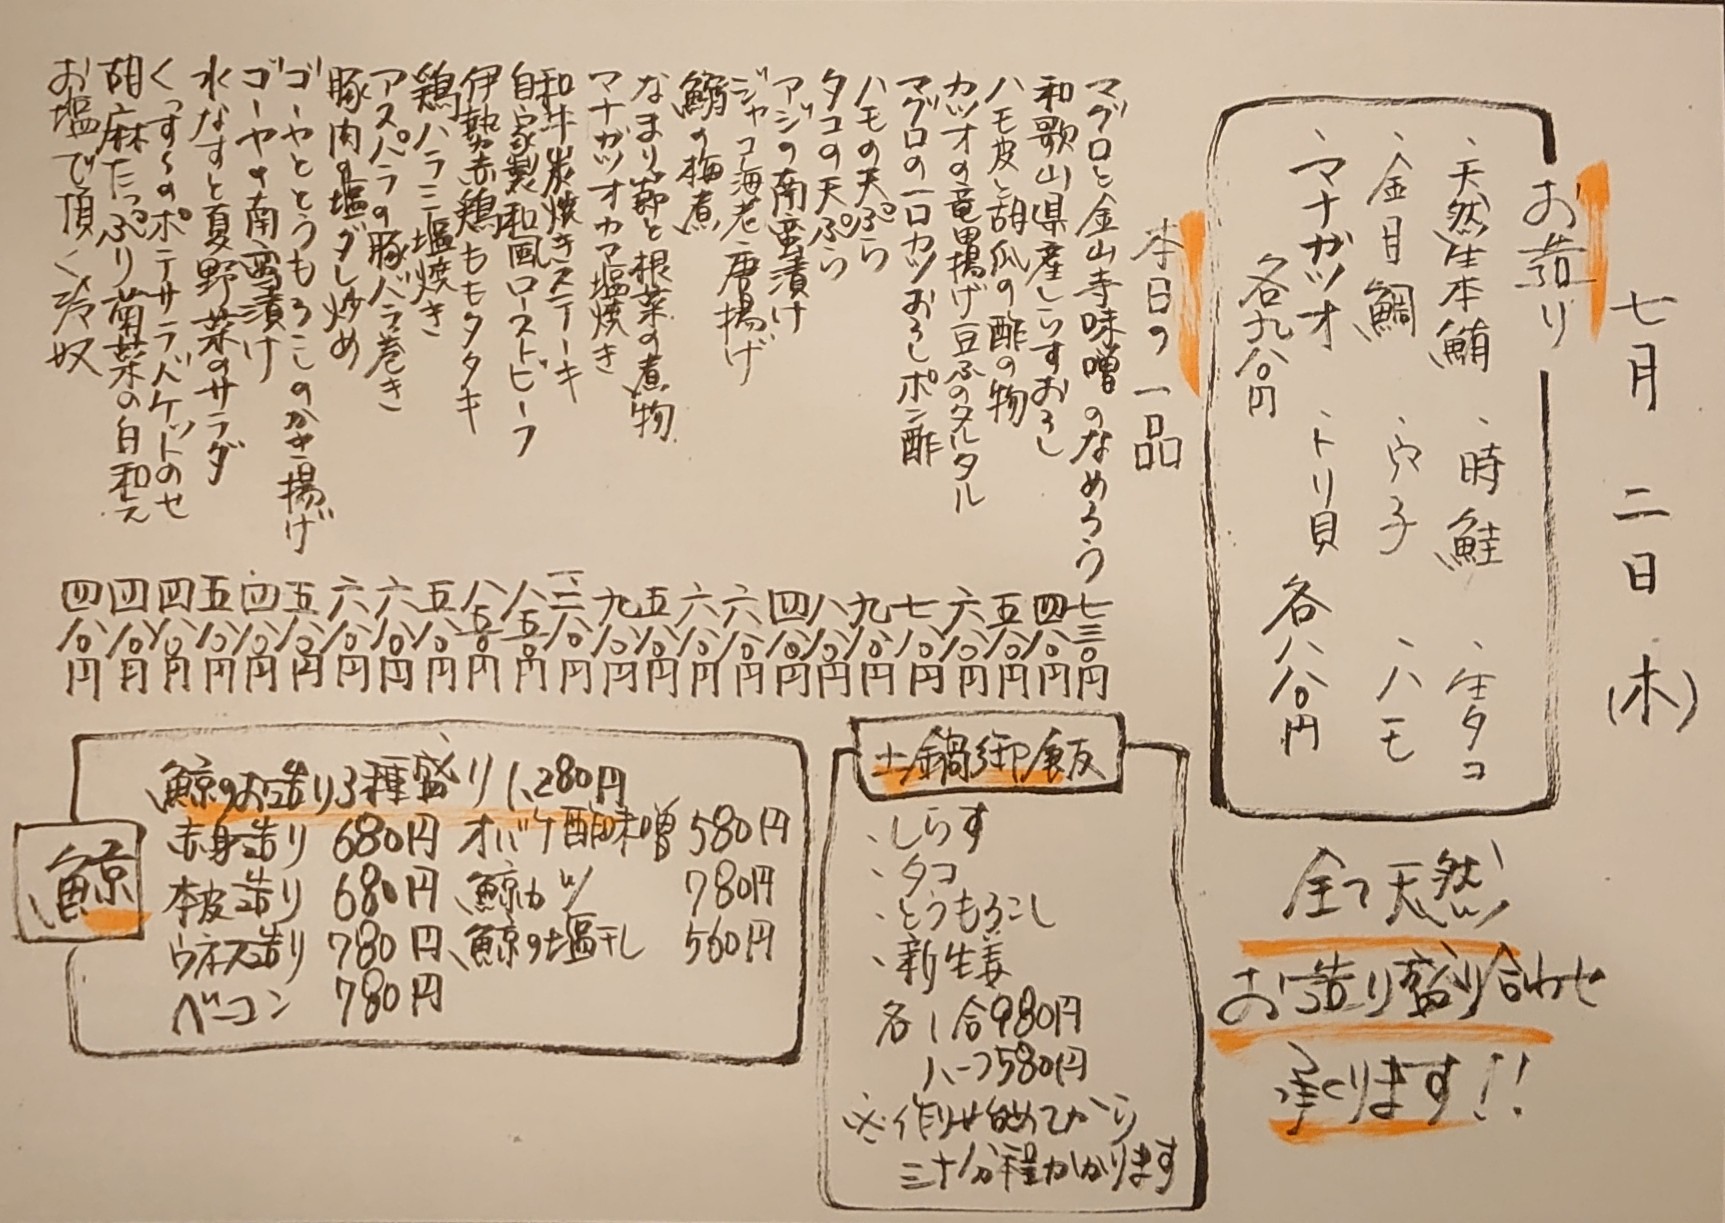 七月二日(木)
お造り
・天然生本鮪 ・時鮭 ・生タコ
・金目鯛 ・穴子 ・ハモ
・マナガツオ ・トリ貝 各八八〇円
各九八〇円
全て天然
お造り盛り合わせ
承ります!!
本日の一品
マグロと金山寺味噌のなめろう 七三〇円
和歌山県産しらすおろし 四八〇円
ハモ皮と胡瓜の酢の物 五八〇円
カツオの竜田揚げ豆ふのタルタル 六八〇円
マグロの一口カツおろしポン酢 七八〇円
ハモの天ぷら 九八〇円
タコの天ぷら 八八〇円
アジの南蛮漬け 四八〇円
ジャコ海老唐揚げ 六八〇円
鰯の梅煮 六八〇円
なまり節と根菜の煮物 五八〇円
マナガツオカマ塩焼き 九八〇円
和牛炭焼きステーキ 一三八〇円
自家製和風ローストビーフ 八五〇円
伊勢赤鶏ももタタキ 八五〇円
鶏ハラミ塩焼き 五八〇円
アスパラの豚バラ巻き 六八〇円
豚肉の塩ダレ炒め 六八〇円
ゴーヤととうもろこしのかき揚げ 五八〇円
ゴーヤの南蛮漬け 四八〇円
水なすと夏野菜のサラダ 五八〇円
くっすんのポテサラバケットのせ 四八〇円
胡麻たっぷり菊菜の白和え 四八〇円
お塩で頂く冷奴 四八〇円
土鍋御飯
・しらす
・タコ
・とうもろこし
・新生姜
各1合980円
ハーフ580円
※作り始めてから
三十分程かかります
鯨
鯨のお造り3種盛り1,280円
赤身造り 680円 オバケ酢味噌 580円
本皮造り 680円 鯨カツ 780円
ウネス造り 780円 鯨の塩干し 560円
ベーコン 780円